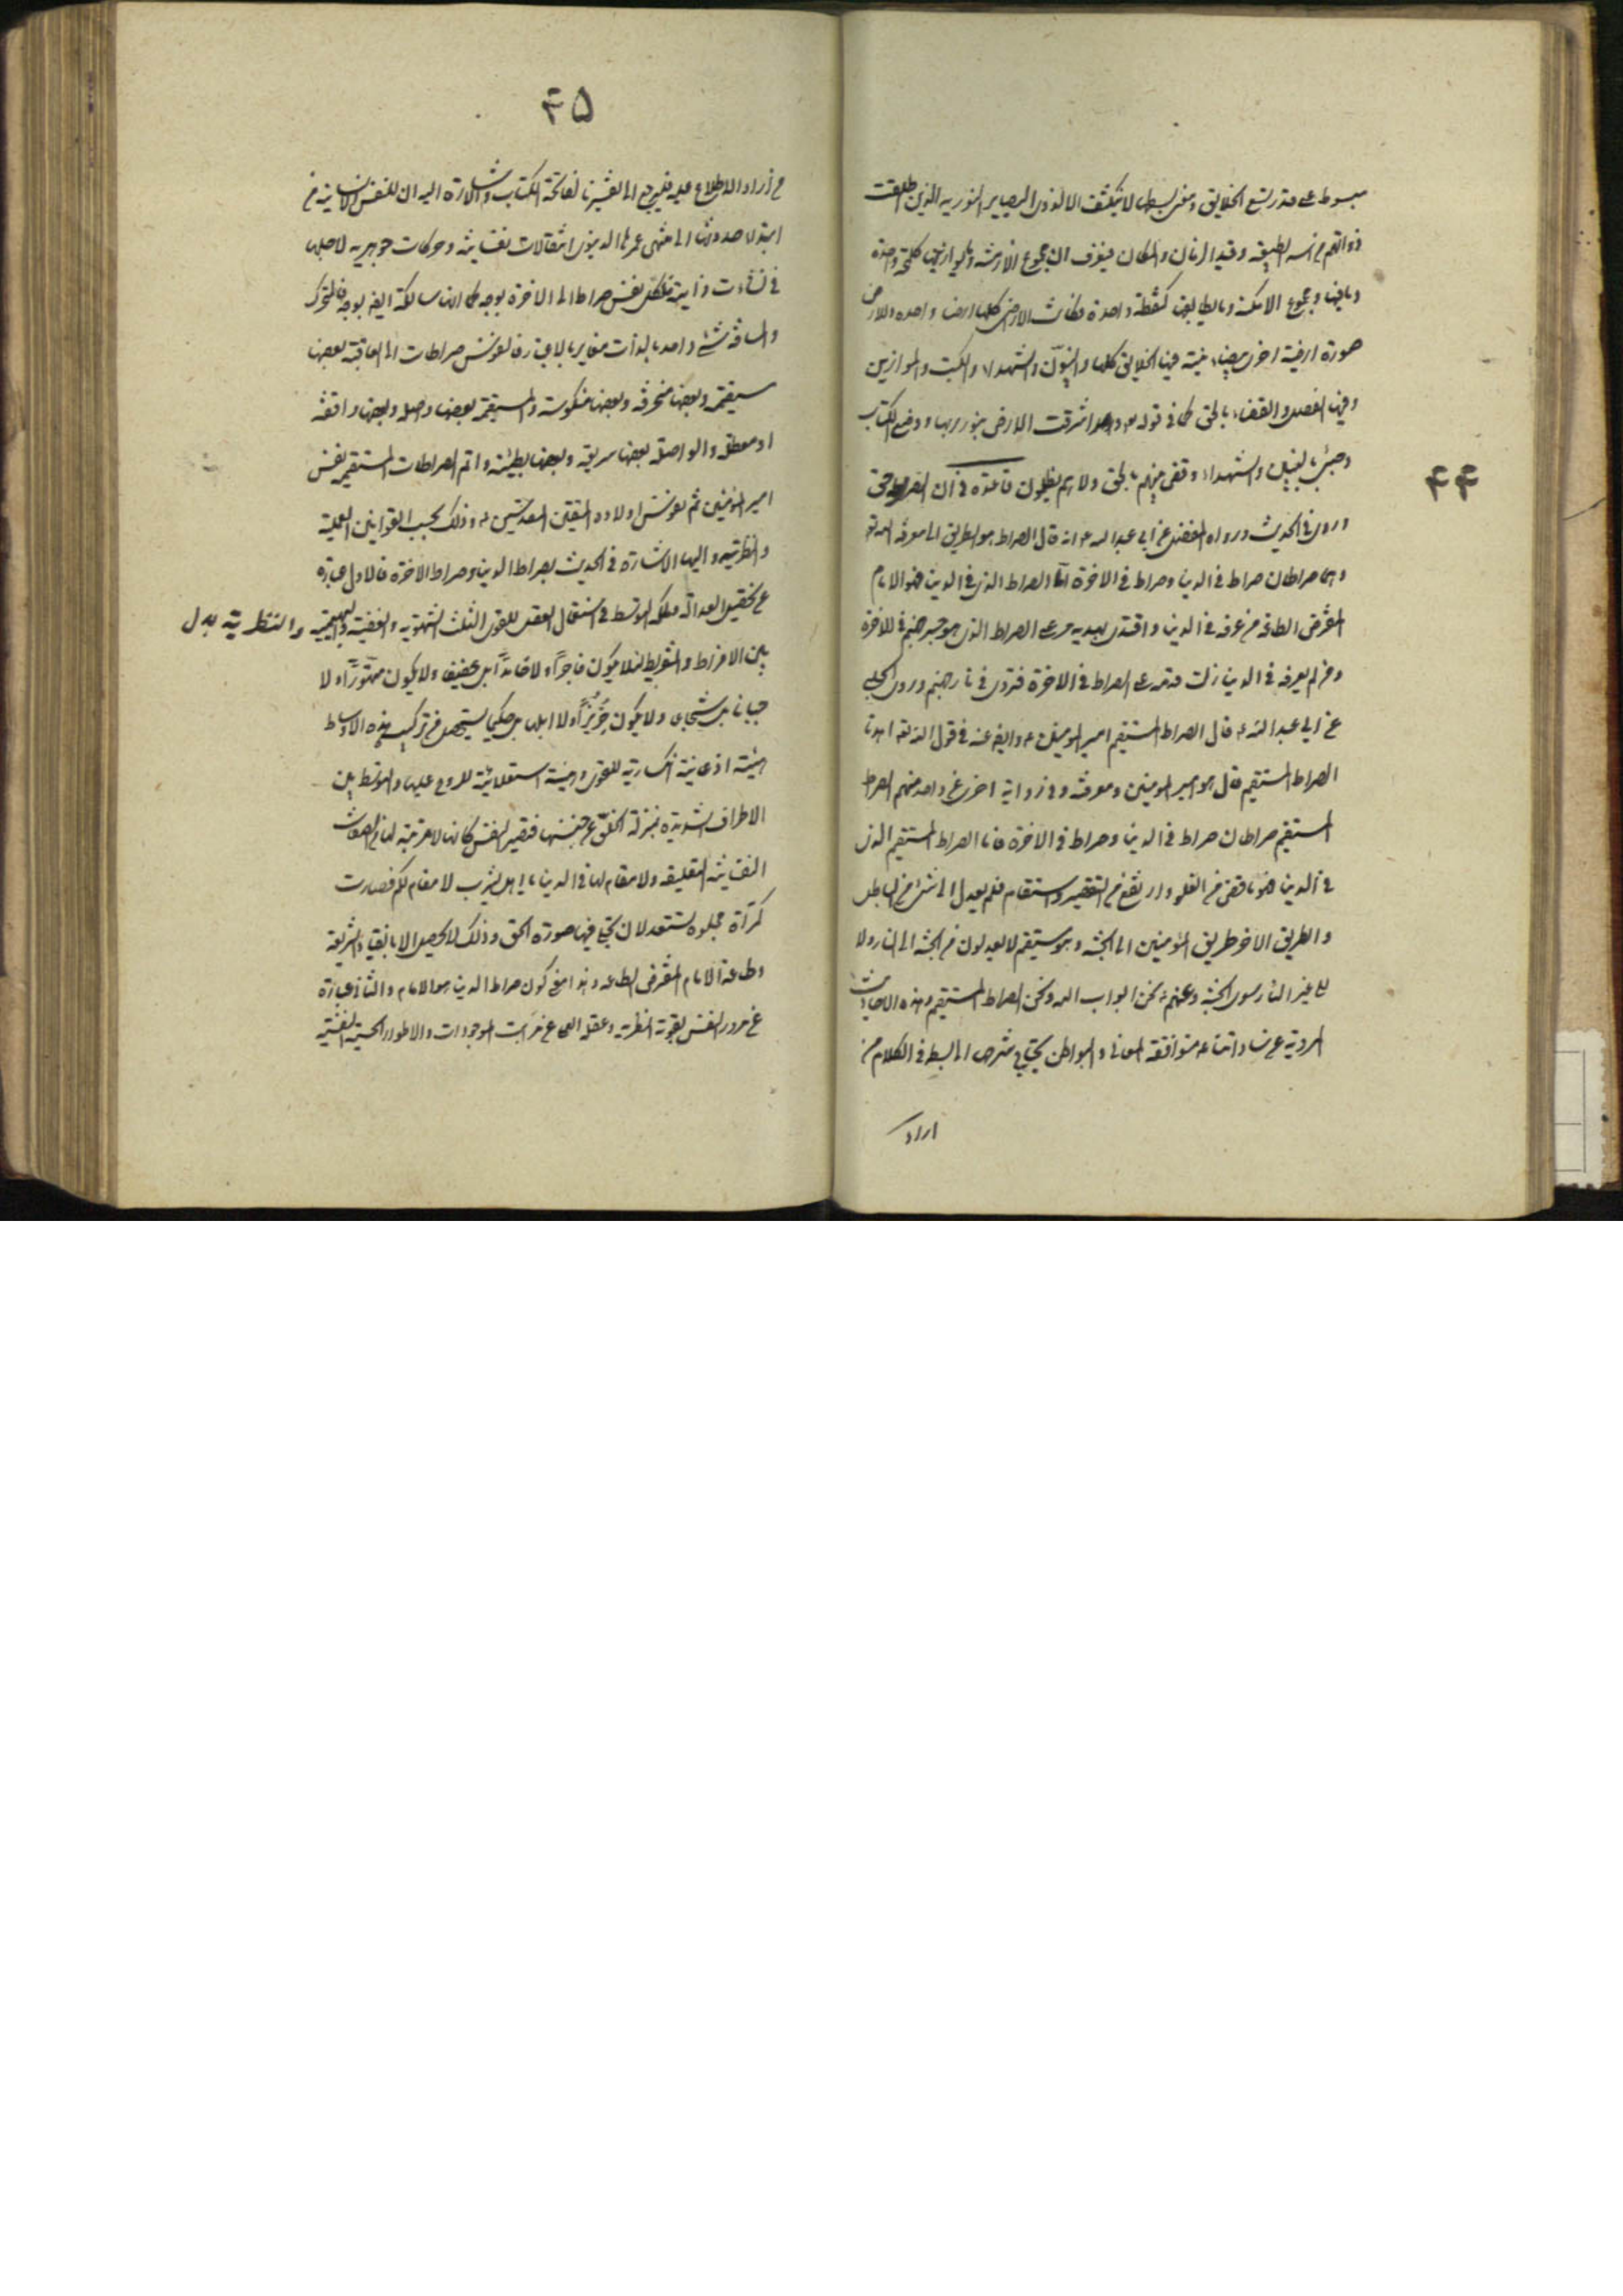 ۴۴
مبسوط على قدر تسع الخلايق ومعنى بسطها لا ينكشف الا لذوى البصاير النورية الذين اطلقت
ذواتهم من اسر الطبيعة وقيد الزمان والمكان فيعرف ان مجموع الازمنة وما يوازيها كلمحة واحدة
وما فيها ومجموع الامكنة وما يطابقها كنقطة واحدة فكانت الارض كلها ارضا واحده وللارض
صورة ارضية اخرى بيضاء نقية فيها الخلايق كلها والنبيون والشهداء والكتب والموازين
وفيها الفصل والقضاء بالحق كما فى قوله واشرقت الارض بنور ربها ووضع الكتاب
وجىء بالنبيين والشهداء وقضى بينهم بالحق وهم لا يظلمون قاعدة فى ان الصراط حق
وروى فى الحديث ورواه المفضل عن ابى عبد الله ع انه قال الصراط هو الطريق الى معرفة الله تع
وهما صراطان صراط فى الدنيا وصراط فى الاخرة اما الصراط الذى فى الدنيا فهو الامام
المفترض الطاعة من عرفه فى الدنيا واقتدى بهديه مر على الصراط الذى هو جسر جهنم فى الاخرة
ومن لم يعرفه فى الدنيا زلت قدمه على الصراط فى الاخرة فتردى فى نار جهنم وروى الحلبى
عن ابى عبد الله ع قال الصراط المستقيم امير المؤمنين ع وايضا عنه فى قول الله تعه اهدنا
الصراط المستقيم قال هو امير المومنين ومعرفته وفى رواية اخرى عن واحد منهم الصراط
المستقيم صراطان صراط فى الدنيا وصراط فى الاخرة فاما الصراط المستقيم الذى
فى الدنيا فهو ما قصر من الغلو وارتفع من التقصير واستقام فلم يعدل الى شىء من الباطل
والطريق الاخر طريق المؤمنين الى الجنة وهو مستقيم لا يعدلون من الجنة الى النار ولا
الى غير النار سوى الجنة وعنهم ع نحن ابواب الله ونحن الصراط المستقيم وهذه الاحاديث
المروية عن ساداتنا ع متوافقة المعانى والبواطن يحتاج شرحها الى البسط فى الكلام من
اراد
۴۵
من اراد الاطلاع عليه فليرجع الى تفسيرنا لفاتحة الكتاب والاشارة اليه ان للنفس الانسانية من
ابتداء حدوثها الى منتهى عمرها الدنيوى انتقالات نفسانية وحركات جوهرية لاجلها
فى نشآت ذاتية فكل نفس صراط الى الاخرة بوجه كما انها سالكة ايضا بوجه فالمتحرك
والمسافة شىء واحد بالذات متغاير بالاعتبار فالنفوس صراطات الى العاقبة بعضها
مستقيمة وبعضها منحرفة وبعضها منكوسة والمستقيمة بعضها واصلة وبعضها واقفة
او معطلة والواصلة بعضها سريعة وبعضها بطيئة واتم الصراطات المستقيمة نفس
امير المؤمنين ثم نفوس اولاده المقدسين ع وذلك بحسب القوانين العملية
والنظرية واليها الاشارة فى الحديث بصراط الدنيا وصراط الاخرة فالاول عبارة
عن تحقيق العدالة وملكة التوسط فى استعمال العقل للقوى الثلث الشهوية والغضبية والوهمية والنظرية بدل
بين الافراط والتفريط لئلا يكون فاجرا ولا خامدا بل عفيفا ولا يكون متهورا ولا
جبانا بل شجاعا ولا يكون جُرْبُزًا ولا ابلها بل حكيما ليستحصل من تركيب هذه الاوساط
هيئة اذعانية انكسارية للقوى وهيئة استعلائية للروح عليها والتوسط بين
الاطراف الشديدة بمنزلة الخلو عن جنسها فتصير النفس كانها لا مرتبة لها من الصفات
النفسانية التعليقة ولا مقام لها فى الدنيا يا اهل يثرب لا مقام لكم فصارت
كمرآة مجلوة تستعد لان يتجلى فيها صورة الحق وذلك لا يحصل الا بانقياد الشريعة
وطاعة الامام المفترض الطاعة وهذا معنى كون صراط الدنيا هو الامام والثانى عبارة
عن مرور النفس بقوته النظرية وعقله العملى عن مراتب الموجودات والاطوار الحسية النفسية